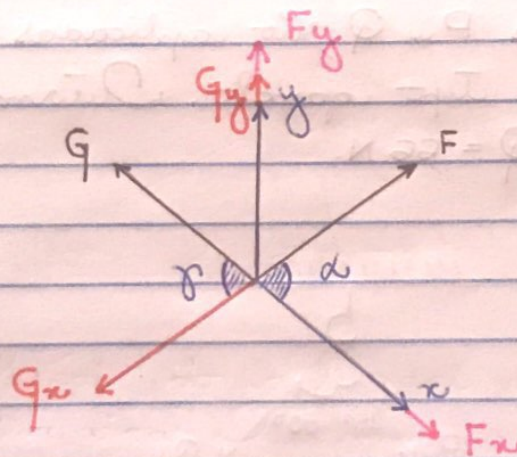 Fy
Gy y
G F
γ α
Gx x
Fx